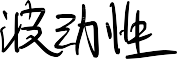 波动性